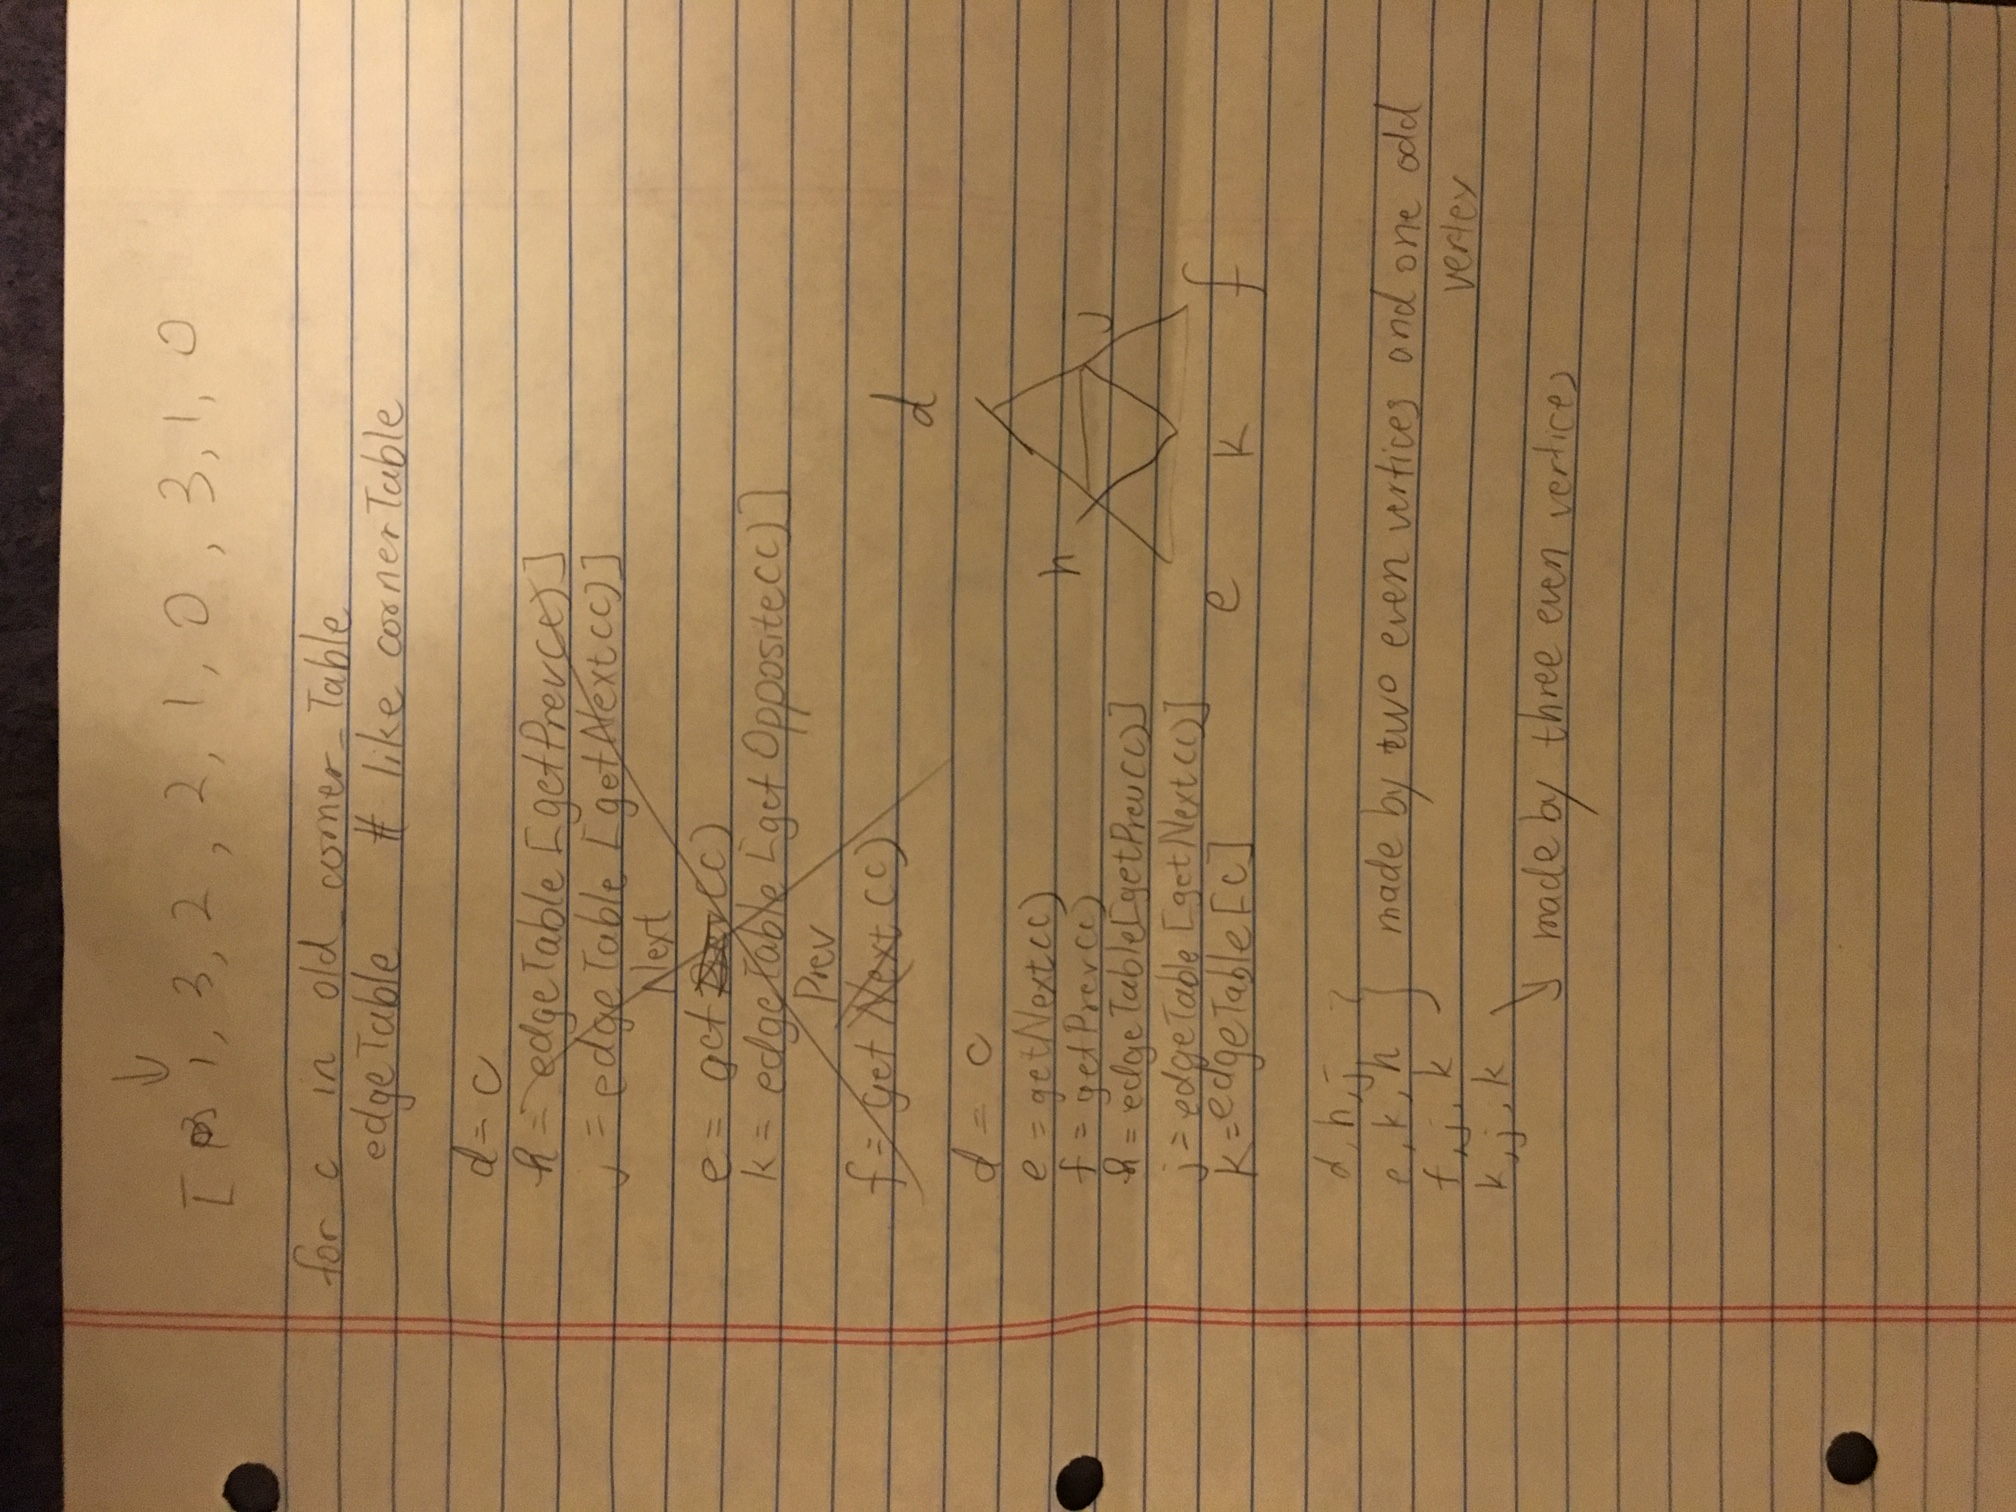 [ 1, 3, 2, 2, 1, 0, 3, 1, 0
for c in old_corner_Table
edgeTable # like cornerTable
d = c
h = edgeTable [getPrev(c)]
j = edgeTable [getNext(c)]
Next
e = get Prev(c)
k = edgeTable [get Opposite(c)]
Prev
f = get Next (c)
d
d = c
e = getNext(c)
h
f = getPrev(c)
j
h = edgeTable[getPrev(c)]
j = edgeTable [getNext(c)]
e k f
k = edgeTable [c]
d, h, j
e, k, h } made by two even vertices and one odd
f, j, k vertex
k, j, k
made by three even vertices